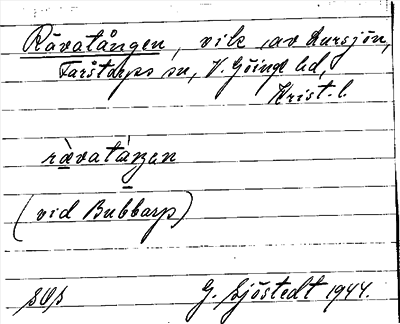 Rävatången, vik av Lursjön,
Farstorps sn, V. Göinge hd,
Krist. l.
rävatåŋen
(vid Bubbarp)
G. Sjöstedt 1944.